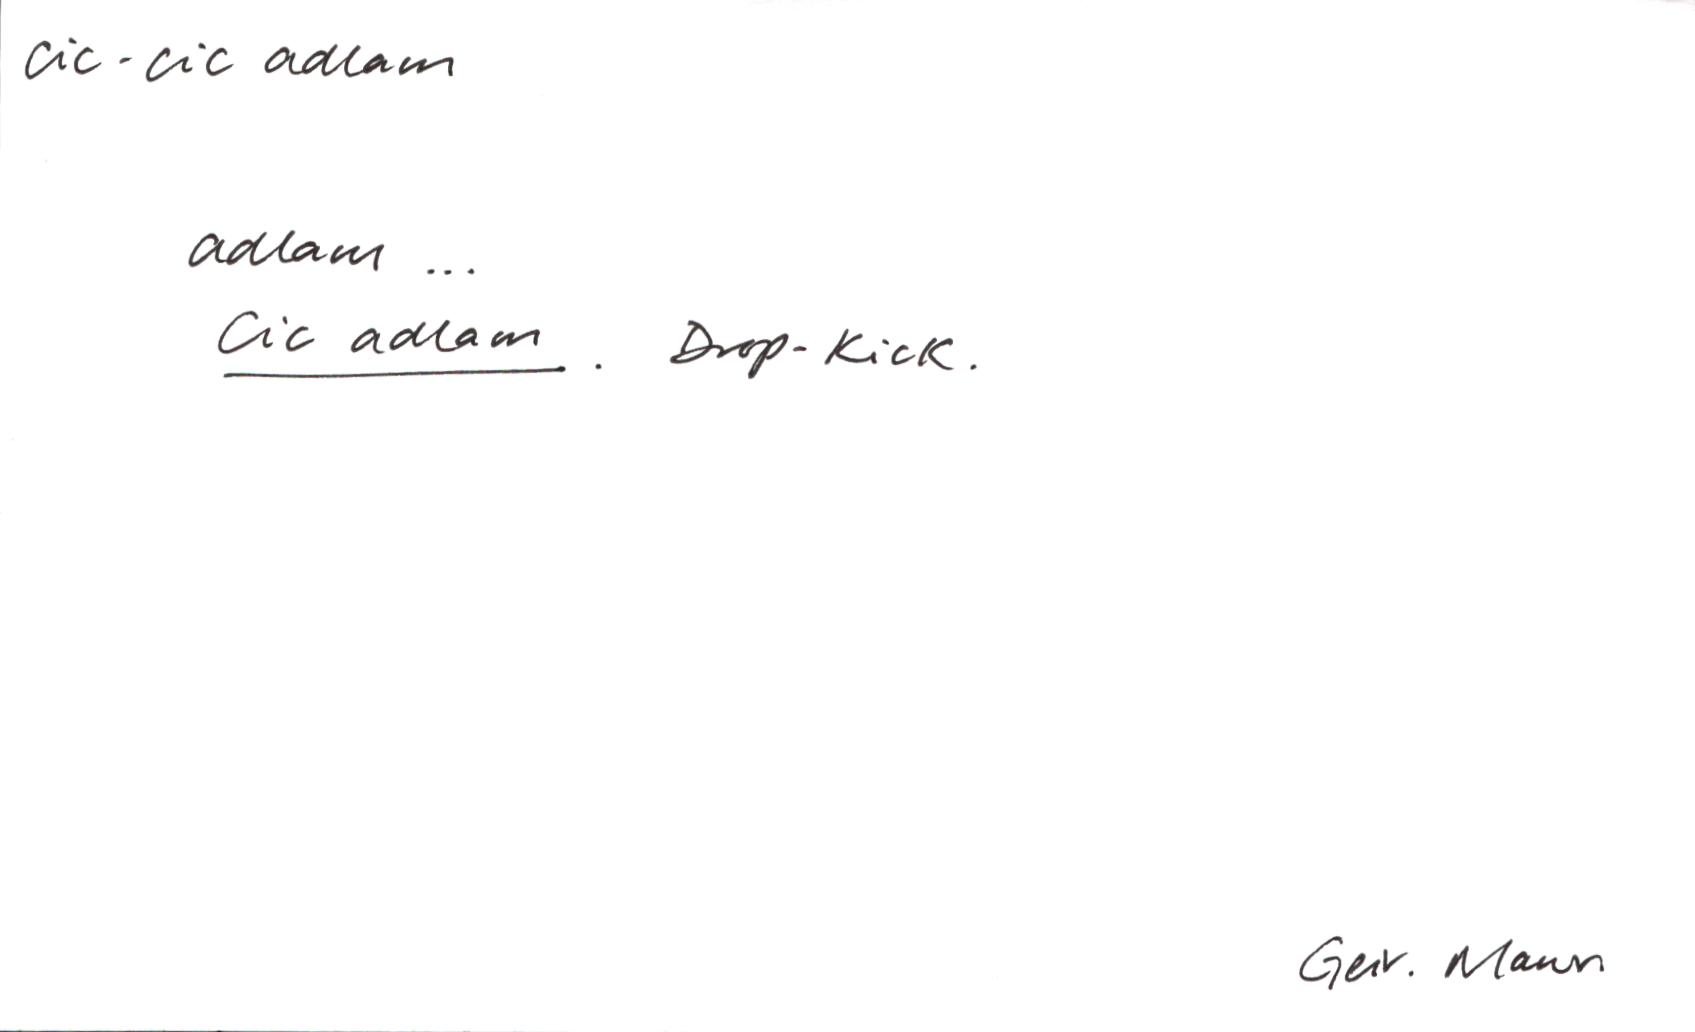 cic - cic adlam
adlam ...
Cic adlam. Drop-Kick.
Geir. Mawr